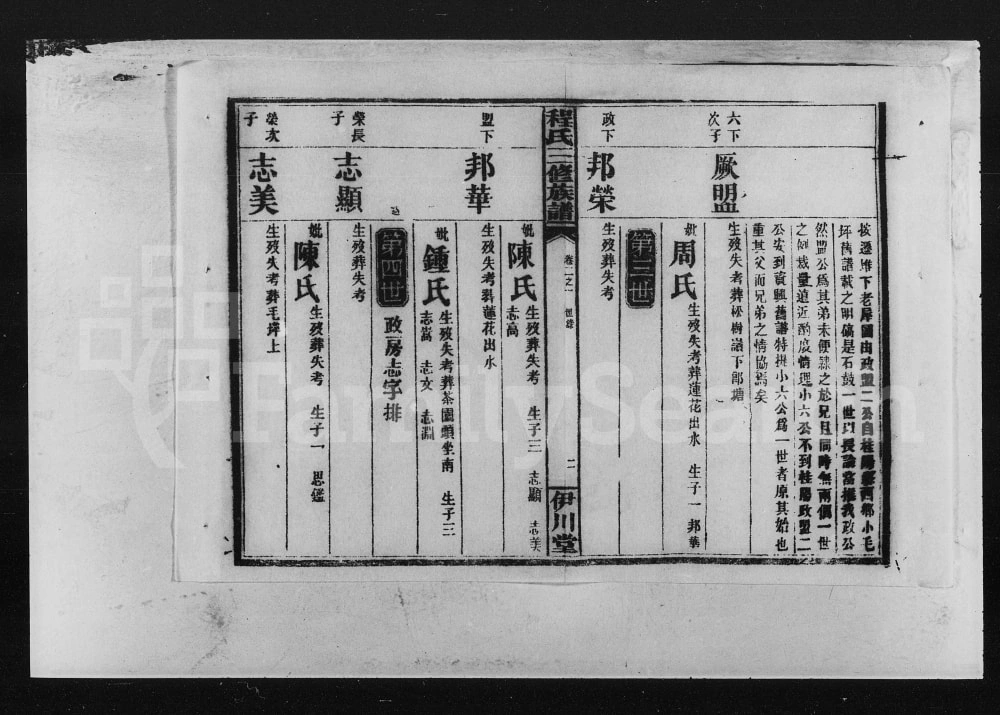 按遷雎下老屋圖由政盟二公自桂陽縣西鄉小毛
坪舊譜載之明確是石鼓一世以長論當推我政公
然盟公爲其弟未便隷之於兄且同時無兩個一世
之例裁量追近酌度情理小六公不到桂陽政盟二
公安到資興舊譜特拱小六公爲一世者原其始也
重其父而兄弟之情協焉矣
六下
次子
厥盟
生歿失考葬松樹嶺下郎塘
妣周氏 生歿失考葬蓮花出水 生子一 邦華
第三世
政下
邦榮
生歿葬失考
程氏三修族譜
卷二之一
二
伊川堂
妣陳氏 生歿葬失考 生子三 志顯 志美
志高
盟下
邦華
生歿失考葬蓮花出水
妣鍾氏 生歿失考葬茶園頭坐南 生子三
志嵩 志文 志淵
第四世 政房志字排
榮長
子
志顯
生歿葬失考
妣陳氏 生歿葬失考 生子一 思鑑
榮次
子
志美
生歿失考葬毛坪上
FamilySearch